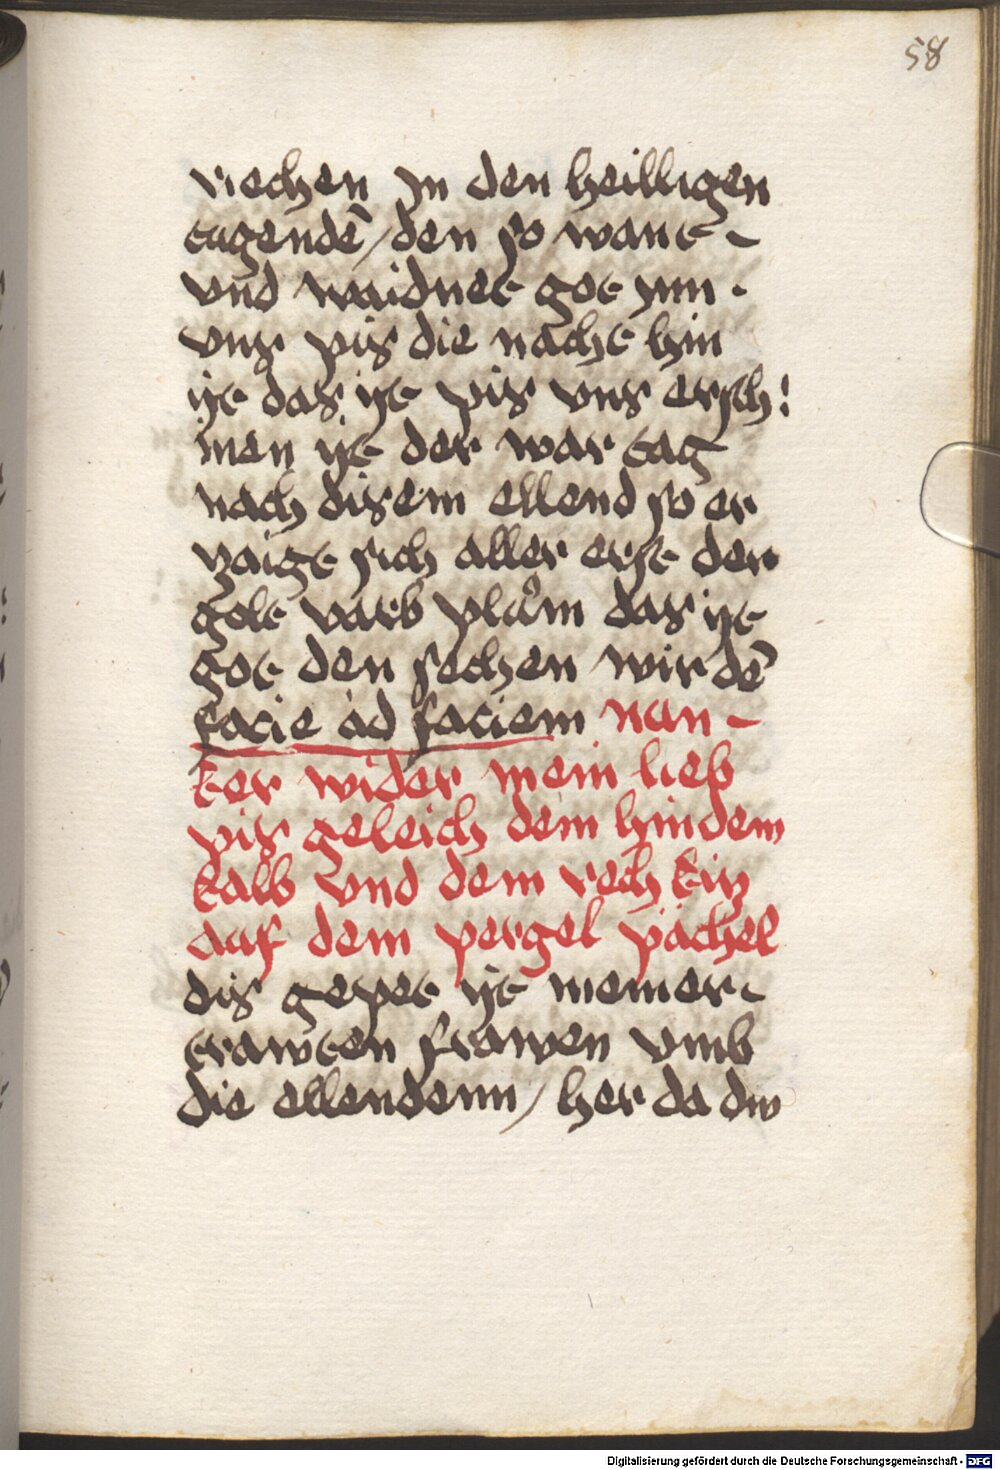 58
riechen jn den heilligen
tugendē / den so want -
vnd waidnet got jnn ·
vns pis die nacht hin
ist das ist pis vns ersch:
inen ist der war tag
nach disem ellend so er
zaigt sich aller erst der
golt varb plům das ist
got den sechen wir dē
facie ad faciem nun -
ker wider mein lieb
pis geleich dem hindem
kalb vnd dem rech kitz
auf dem pergel pächel
dis gepet ist meiner -
trawten frawen vmb
die ellendenn / her da dw
Digitalisierung gefördert durch die Deutsche Forschungsgemeinschaft - DFG